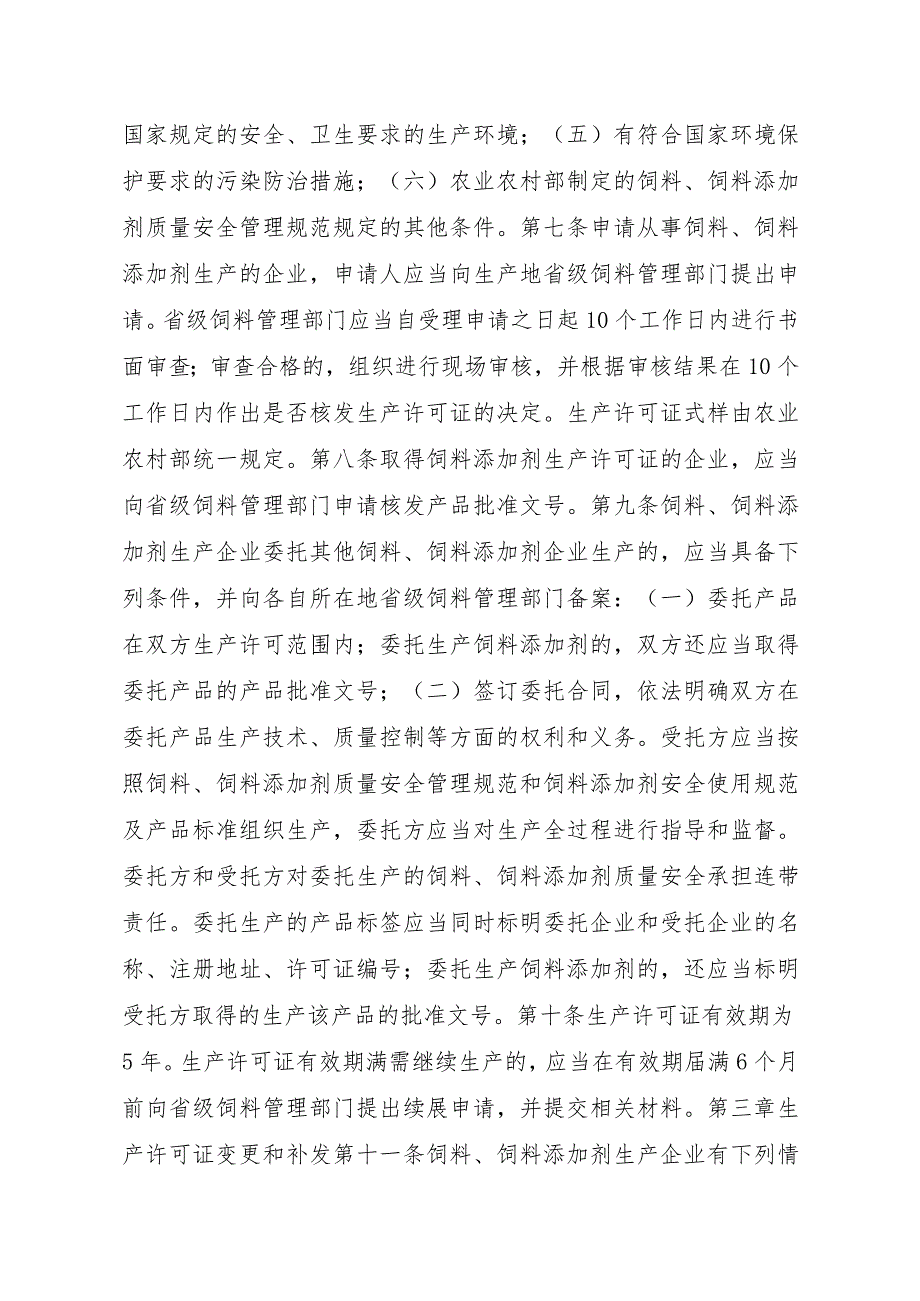 国家规定的安全、卫生要求的生产环境；（五）有符合国家环境保
护要求的污染防治措施；（六）农业农村部制定的饲料、饲料添加
剂质量安全管理规范规定的其他条件。第七条申请从事饲料、饲料
添加剂生产的企业，申请人应当向生产地省级饲料管理部门提出申
请。省级饲料管理部门应当自受理申请之日起 10 个工作日内进行书
面审查；审查合格的，组织进行现场审核，并根据审核结果在 10 个
工作日内作出是否核发生产许可证的决定。生产许可证式样由农业
农村部统一规定。第八条取得饲料添加剂生产许可证的企业，应当
向省级饲料管理部门申请核发产品批准文号。第九条饲料、饲料添
加剂生产企业委托其他饲料、饲料添加剂企业生产的，应当具备下
列条件，并向各自所在地省级饲料管理部门备案：（一）委托产品
在双方生产许可范围内；委托生产饲料添加剂的，双方还应当取得
委托产品的产品批准文号；（二）签订委托合同，依法明确双方在
委托产品生产技术、质量控制等方面的权利和义务。受托方应当按
照饲料、饲料添加剂质量安全管理规范和饲料添加剂安全使用规范
及产品标准组织生产，委托方应当对生产全过程进行指导和监督。
委托方和受托方对委托生产的饲料、饲料添加剂质量安全承担连带
责任。委托生产的产品标签应当同时标明委托企业和受托企业的名
称、注册地址、许可证编号；委托生产饲料添加剂的，还应当标明
受托方取得的生产该产品的批准文号。第十条生产许可证有效期为
5 年。生产许可证有效期满需继续生产的，应当在有效期届满 6 个月
前向省级饲料管理部门提出续展申请，并提交相关材料。第三章生
产许可证变更和补发第十一条饲料、饲料添加剂生产企业有下列情